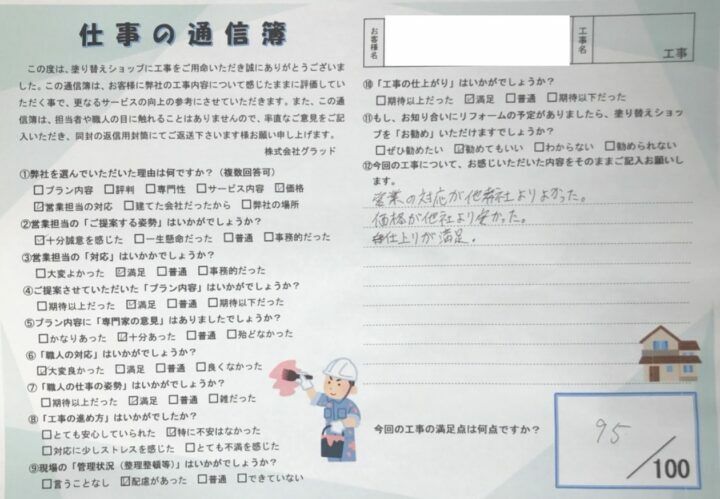 仕事の通信簿
この度は、塗り替えショップに工事をご用命いただき誠にありがとうございま
した。この通信簿は、お客様に弊社の工事内容について感じたままに評価してい
ただく事で、更なるサービスの向上の参考にさせていただきます。また、この通
信簿は、担当者や職人の目に触れることはありませんので、率直なご意見をご記
入いただき、同封の返信用封筒にてご返送下さいます様お願い申し上げます。
株式会社グラッド
①弊社を選んでいただいた理由は何ですか？（複数回答可）
□プラン内容 □評判 □専門性 □サービス内容 ☑価格
☑営業担当の対応 □建てた会社だったから □弊社の場所
②営業担当の「ご提案する姿勢」はいかがでしょうか？
☑十分誠意を感じた □一生懸命だった □普通 □事務的だった
③営業担当の「対応」はいかかでしょうか？
□大変よかった ☑満足 □普通 □事務的だった
④ご提案させていただいた「プラン内容」はいかがでしょうか？
□期待以上だった ☑満足 □普通 □期待以下だった
⑤プラン内容に「専門家の意見」はありましたでしょうか？
□かなりあった ☑十分あった □普通 □殆どなかった
⑥「職人の対応」はいかがでしょうか？
☑大変良かった □満足 □普通 □良くなかった
⑦「職人の仕事の姿勢」はいかがでしょうか？
□期待以上だった ☑満足 □普通 □雑だった
⑧「工事の進め方」はいかがでしたか？
□とても安心していられた ☑特に不安はなかった
□対応に少しストレスを感じた □とても不満を感じた
⑨現場の「管理状況（整理整頓等）」はいかがでしょうか？
□言うことなし ☑配慮があった □普通 □できていない
お客様名
工事名
工事
⑩「工事の仕上がり」はいかがでしょうか？
□期待以上だった ☑満足 □普通 □期待以下だった
⑪もし、お知り合いにリフォームの予定がありましたら、塗り替えショッ
プを「お勧め」いただけますでしょうか？
□ぜひ勧めたい ☑勧めてもいい □わからない □勧められない
⑫今回の工事について、お感じいただいた内容をそのままご記入お願いし
ます。
営業の対応が他社よりよかった。
価格が他社より安かった。
仕上りが満足。
今回の工事の満足点は何点ですか？
95
/100